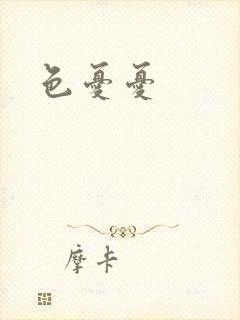 色憂憂
摩卡